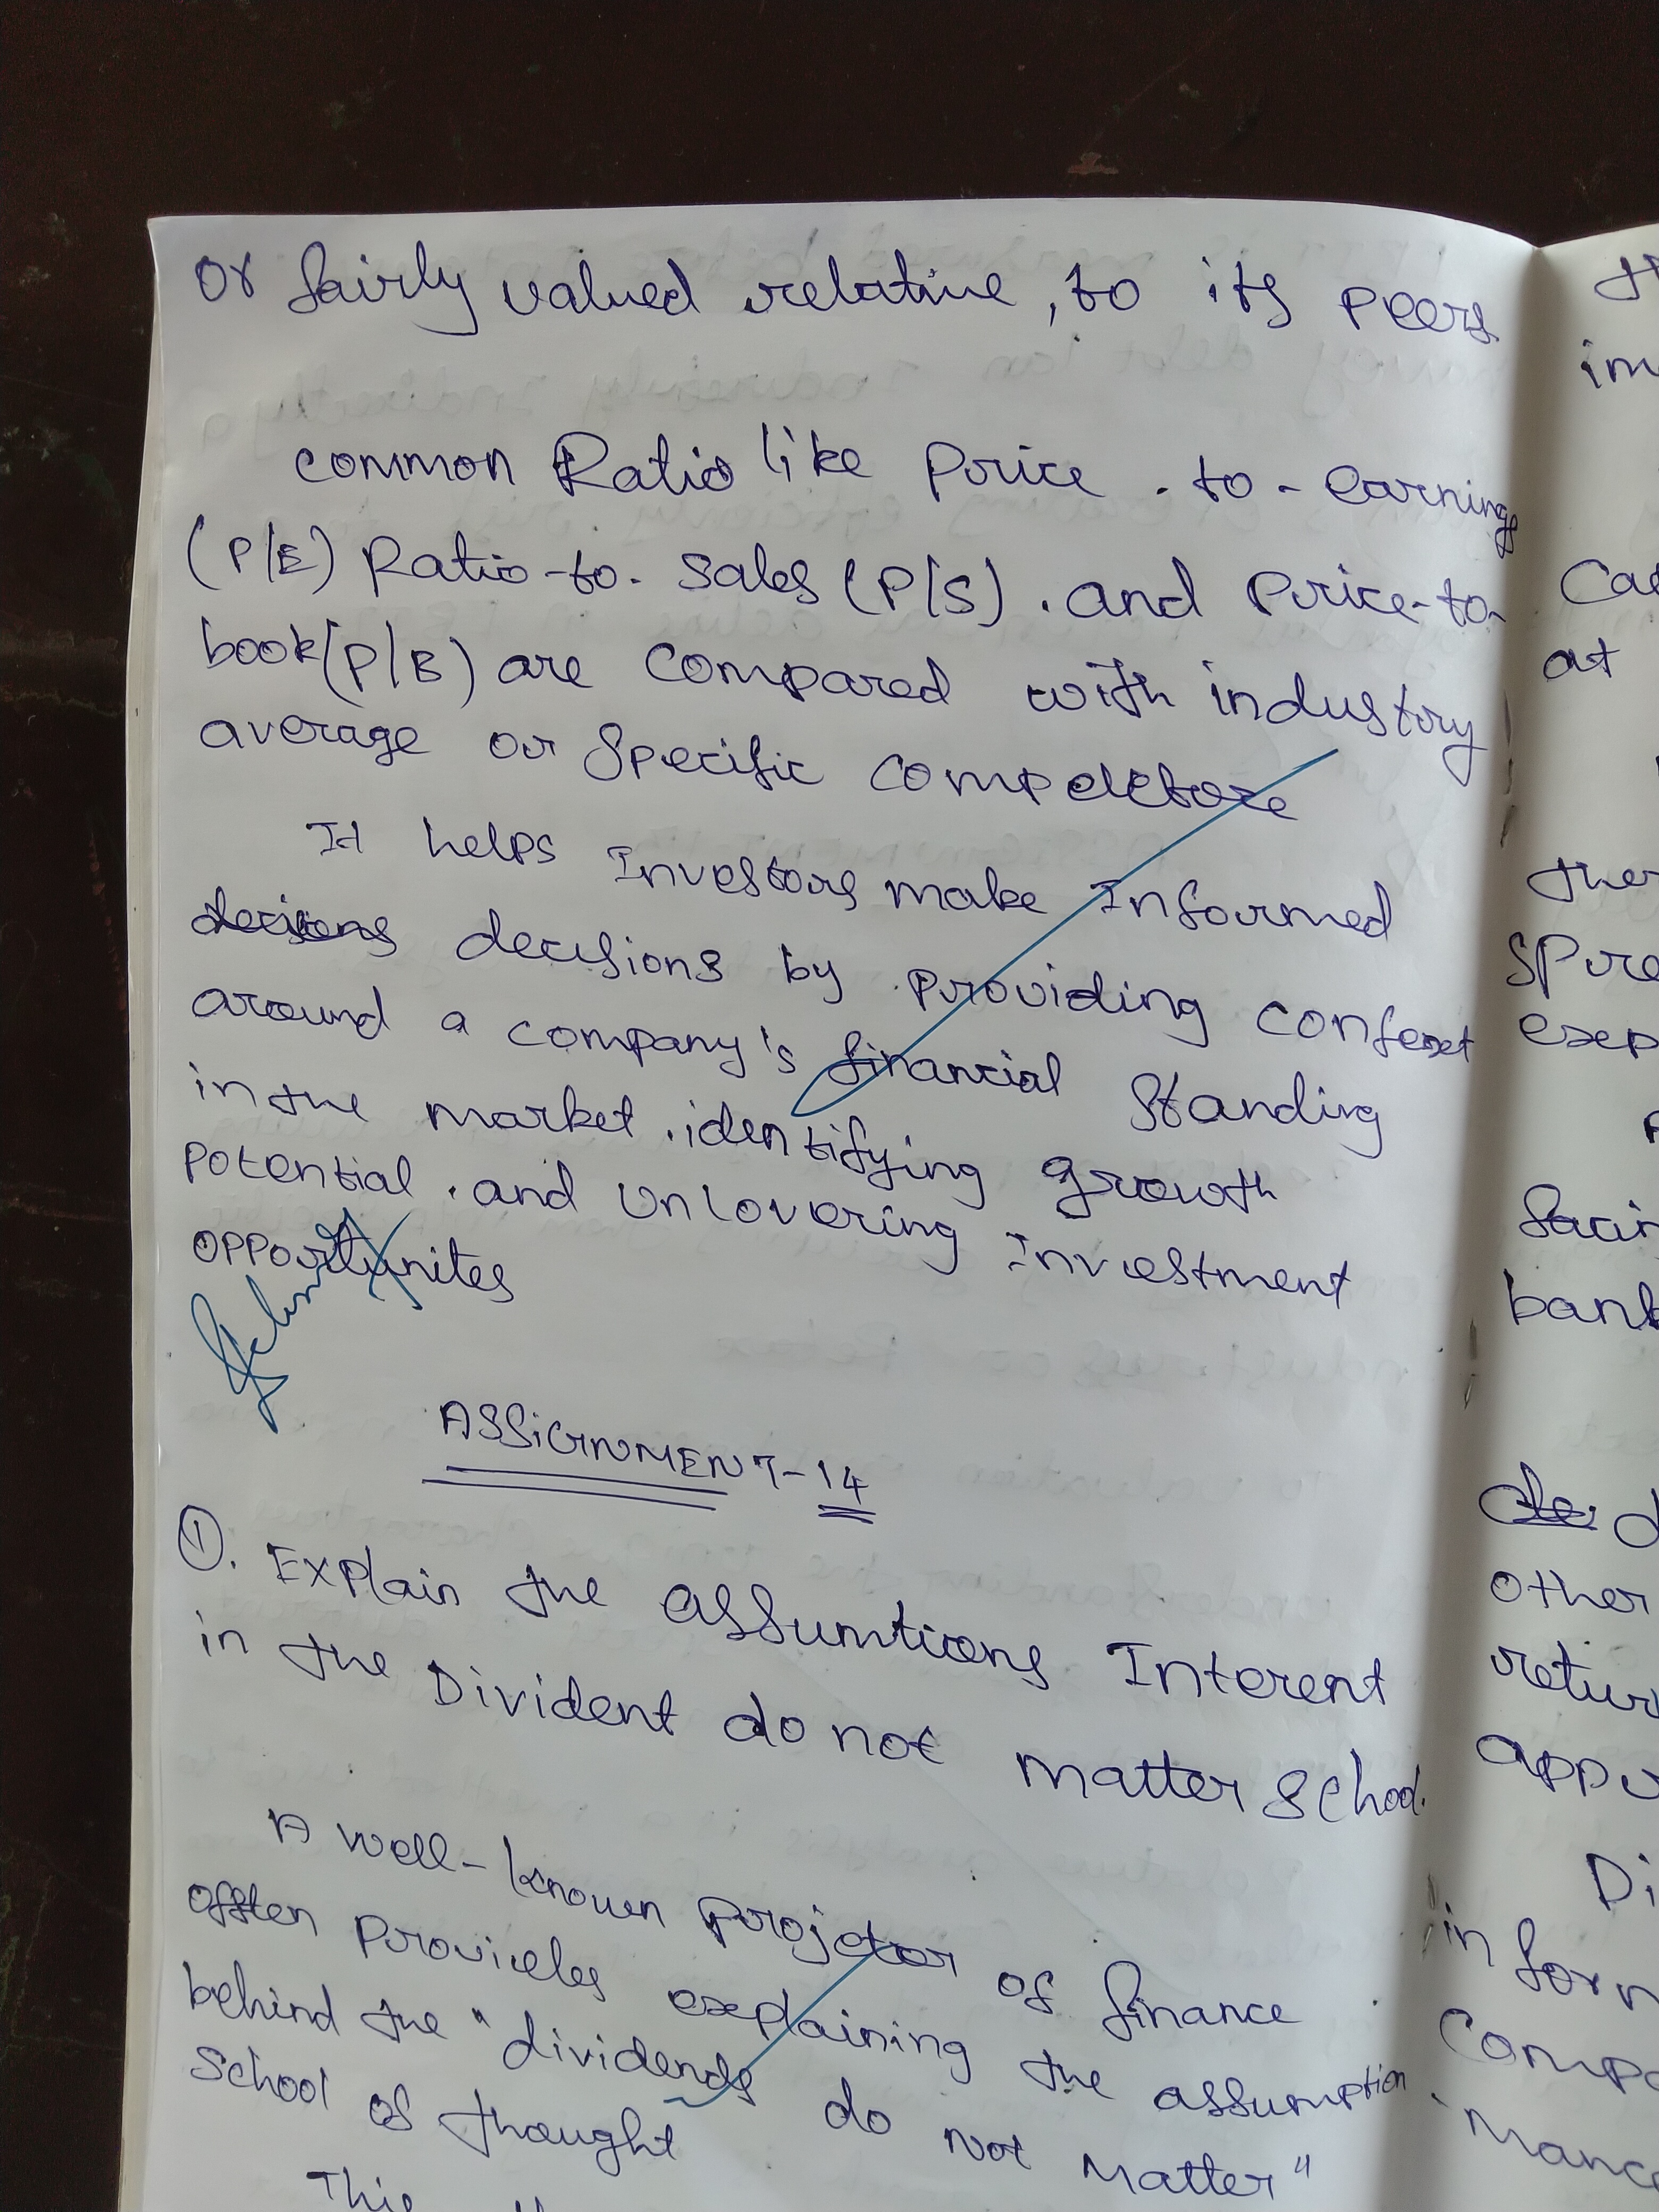 or fairly valued relative, to its peers
common Ratio like Price - to - earnings
(P/E) Ratio-to- sales (P/S) . and Price-to-
book(P/B) are compared with industry
average or specific
It helps Investors make Informed
decisions decisions by providing context
around a company's financial standing
in the market . identifying growth
potential . and unlovering investment
opportunites
ASSIGNMENT-14
①. Explain the assumtions Interent
in the Divident do not matter school.
A well-known of finance
often provides explaining the assumption
behind the "dividends do not matter"
school of thought
This
im
at
other
Di
in